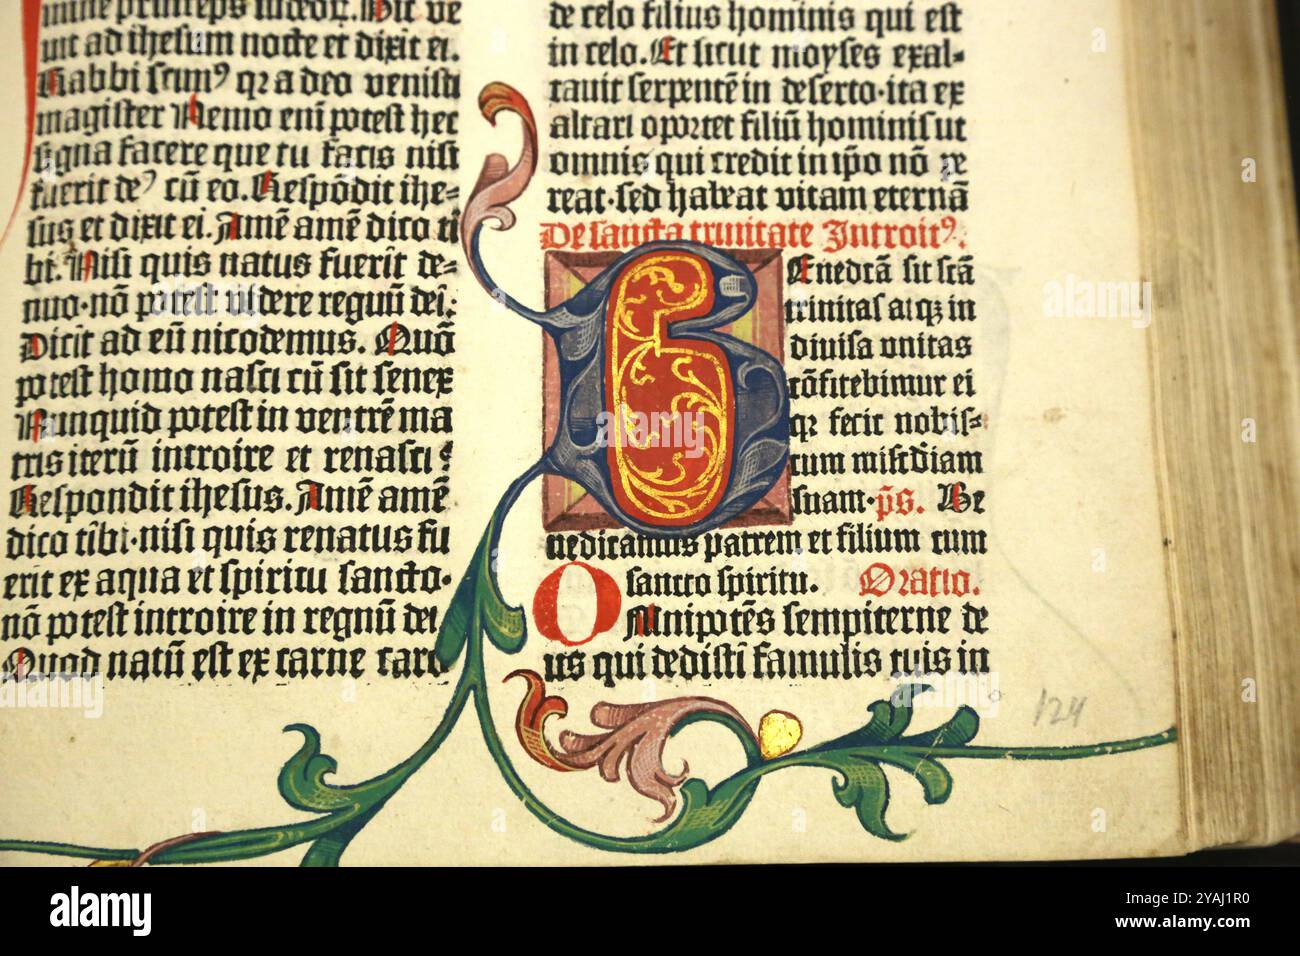 mine princeps iudeoꝝ. Hic ve
nit ad ihesum nocte et dixit ei.
Rabbi scim⁹ qꝛ a deo venisti
magister Nemo enī potest hec
signa facere que tu facis nisi
fuerit de⁹ cū eo. Respōdit ihe⸗
sus et dixit ei. Amē amē dico ti
bi. Nisi quis natus fuerit de⸗
nuo·nō potest videre regnū dei:
Dicit ad eū nicodemus. Quō
potest homo nasci cū sit senex
Nunquid potest in ventrē ma
tris iterū introire et renasci?
Respondit ihesus. Amē amē
dico tibi·nisi quis renatus fu
erit ex aqua et spiritu sancto·
nō potest introire in regnū dei
Quod natū est ex carne caro
de celo filius hominis qui est
in celo. Et sicut moyses exal⸗
tauit serpentē in deserto·ita ex
altari oportet filiū hominis ut
omnis qui credit in ip̄o nō pe
reat·sed habeat vitam eternā
De sancta trinitate Introit⁹.
Benedctā sit scā
trinitas atqꝫ in
diuisa vnitas
cōfitebimur ei
qꝛ fecit nobis⸗
cum mis̄cdiam
suam·p̄s. Be
nedicamus patrem et filium cum
sancto spiritu. Oratio.
OMnipotēs sempiterne de
us qui dedisti famulis tuis in
124
alamy
Image ID: 2YAJ1R0
www.alamy.com